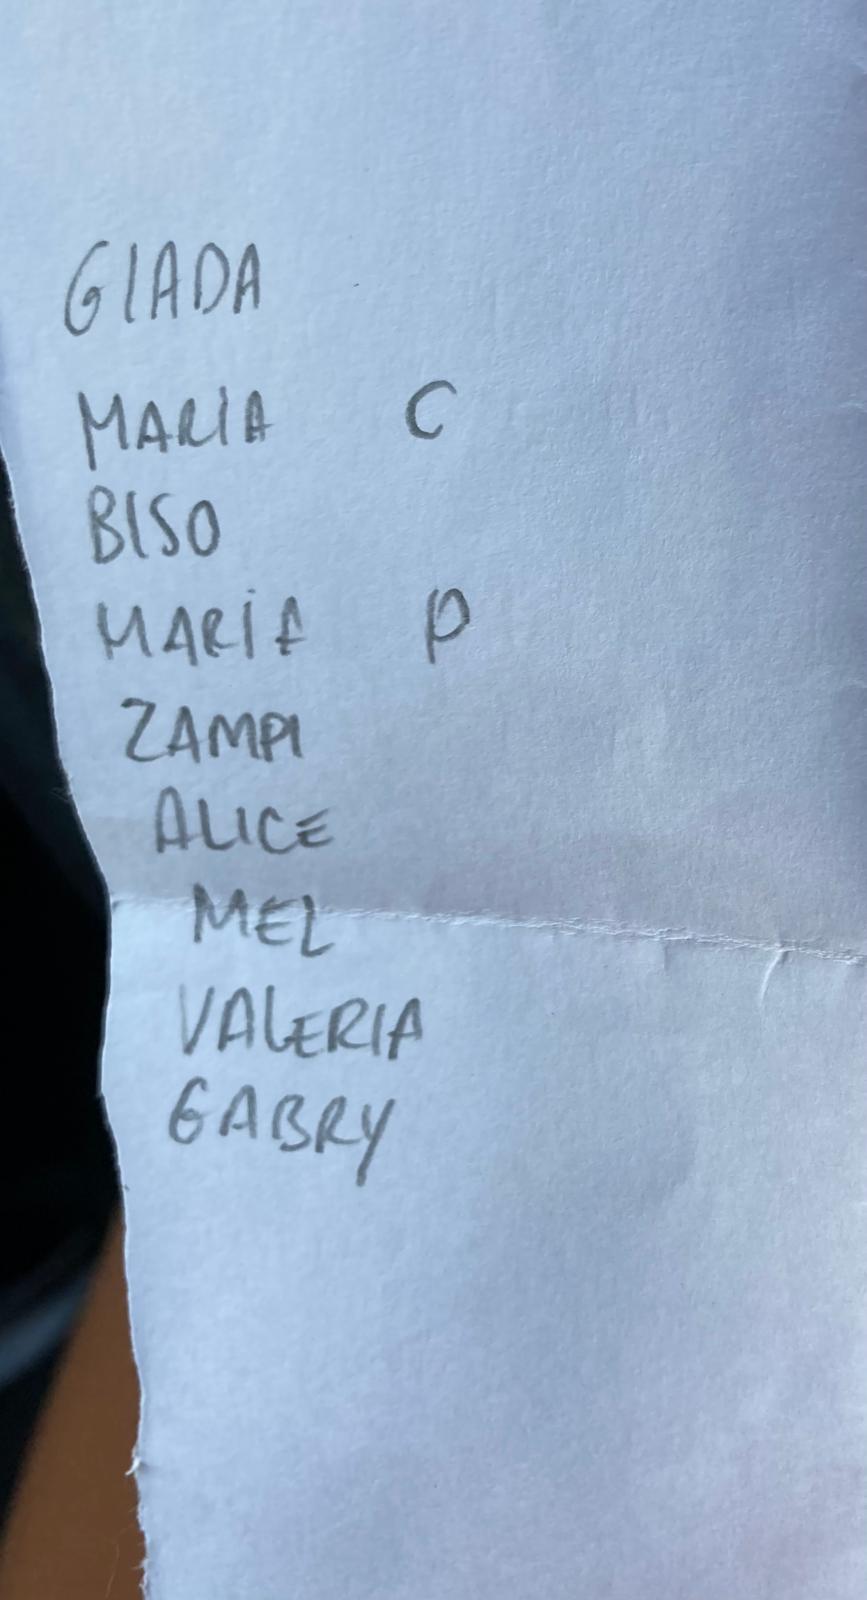 GIADA
MARIA C
BISO
MARIA P
ZAMPI
ALICE
MEL
VALERIA
GABRY